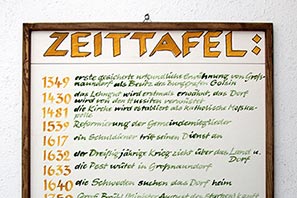 ZEITTAFEL:
1349 erste gesicherte urkundliche Erwähnung von Groß-
naundorf als Besitz der Burggrafen Golsin
1430 das Lehngut wird erstmals erwähnt, das Dorf
wird von den Hussiten verwüstet
1481 die Kirche wird etabliert als katholische
1539 Reformierung der Gemeindemitglieder
1617 ein Schuldiener tritt seinen Dienst an
1632 der Dreißigjährige Krieg zieht über das Land u.
Dorf
1633 die Pest wütet in Großnaundorf
1640 die Schweden suchen das Dorf heim